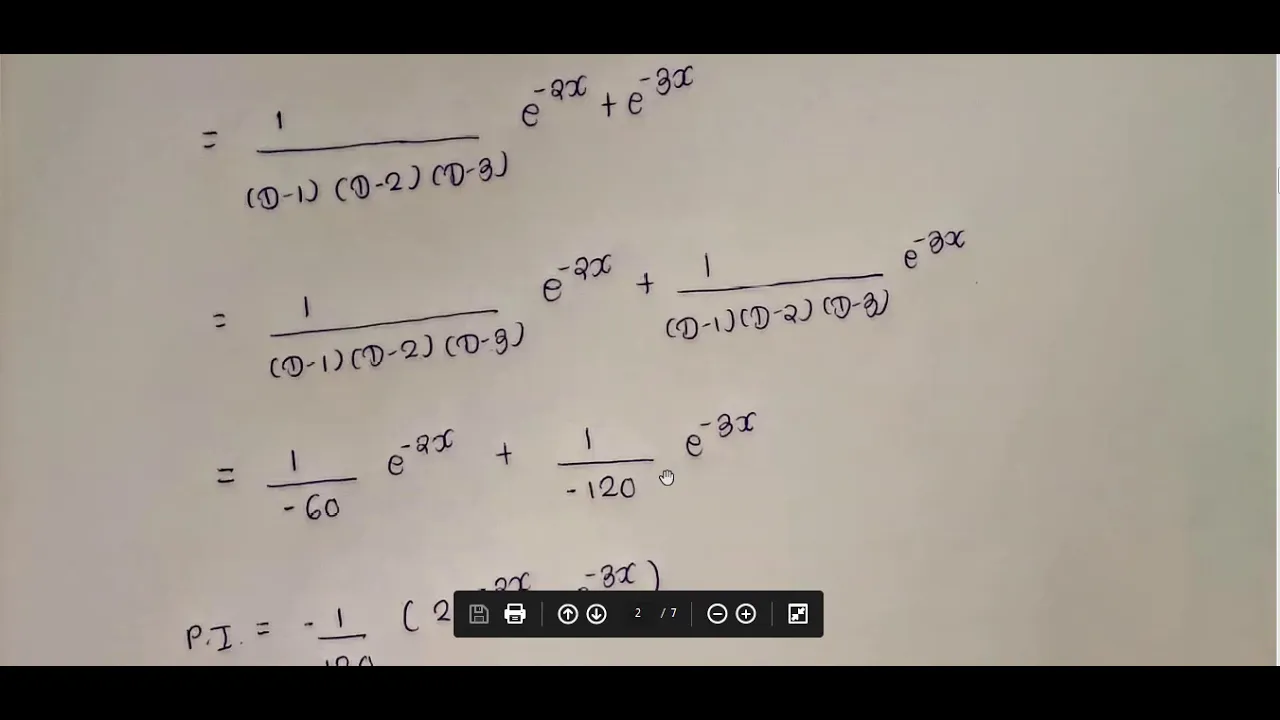 = 1 / (D-1) (D-2) (D-3) e^-2x + e^-3x
= 1 / (D-1) (D-2) (D-3) e^-2x + 1 / (D-1) (D-2) (D-3) e^-3x
= 1 / -60 e^-2x + 1 / -120 e^-3x
P.I. = - 1 / 120 ( 2 -2x e^-3x )
2 / 7